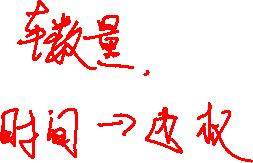 车数量,
时间→边权